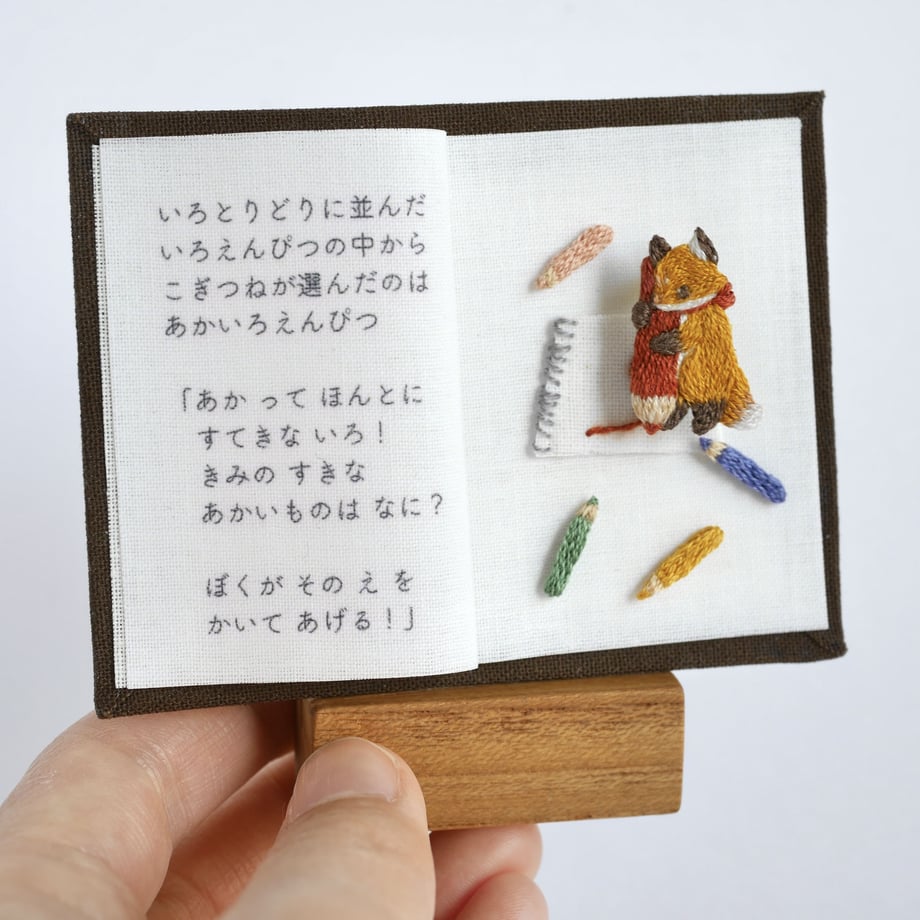 いろとりどりに並んだ
いろえんぴつの中から
こぎつねが選んだのは
あかいろえんぴつ
「あか って ほんとに
すてきな いろ！
きみの すきな
あかいものは なに？
ぼくが その え を
かいて あげる！」